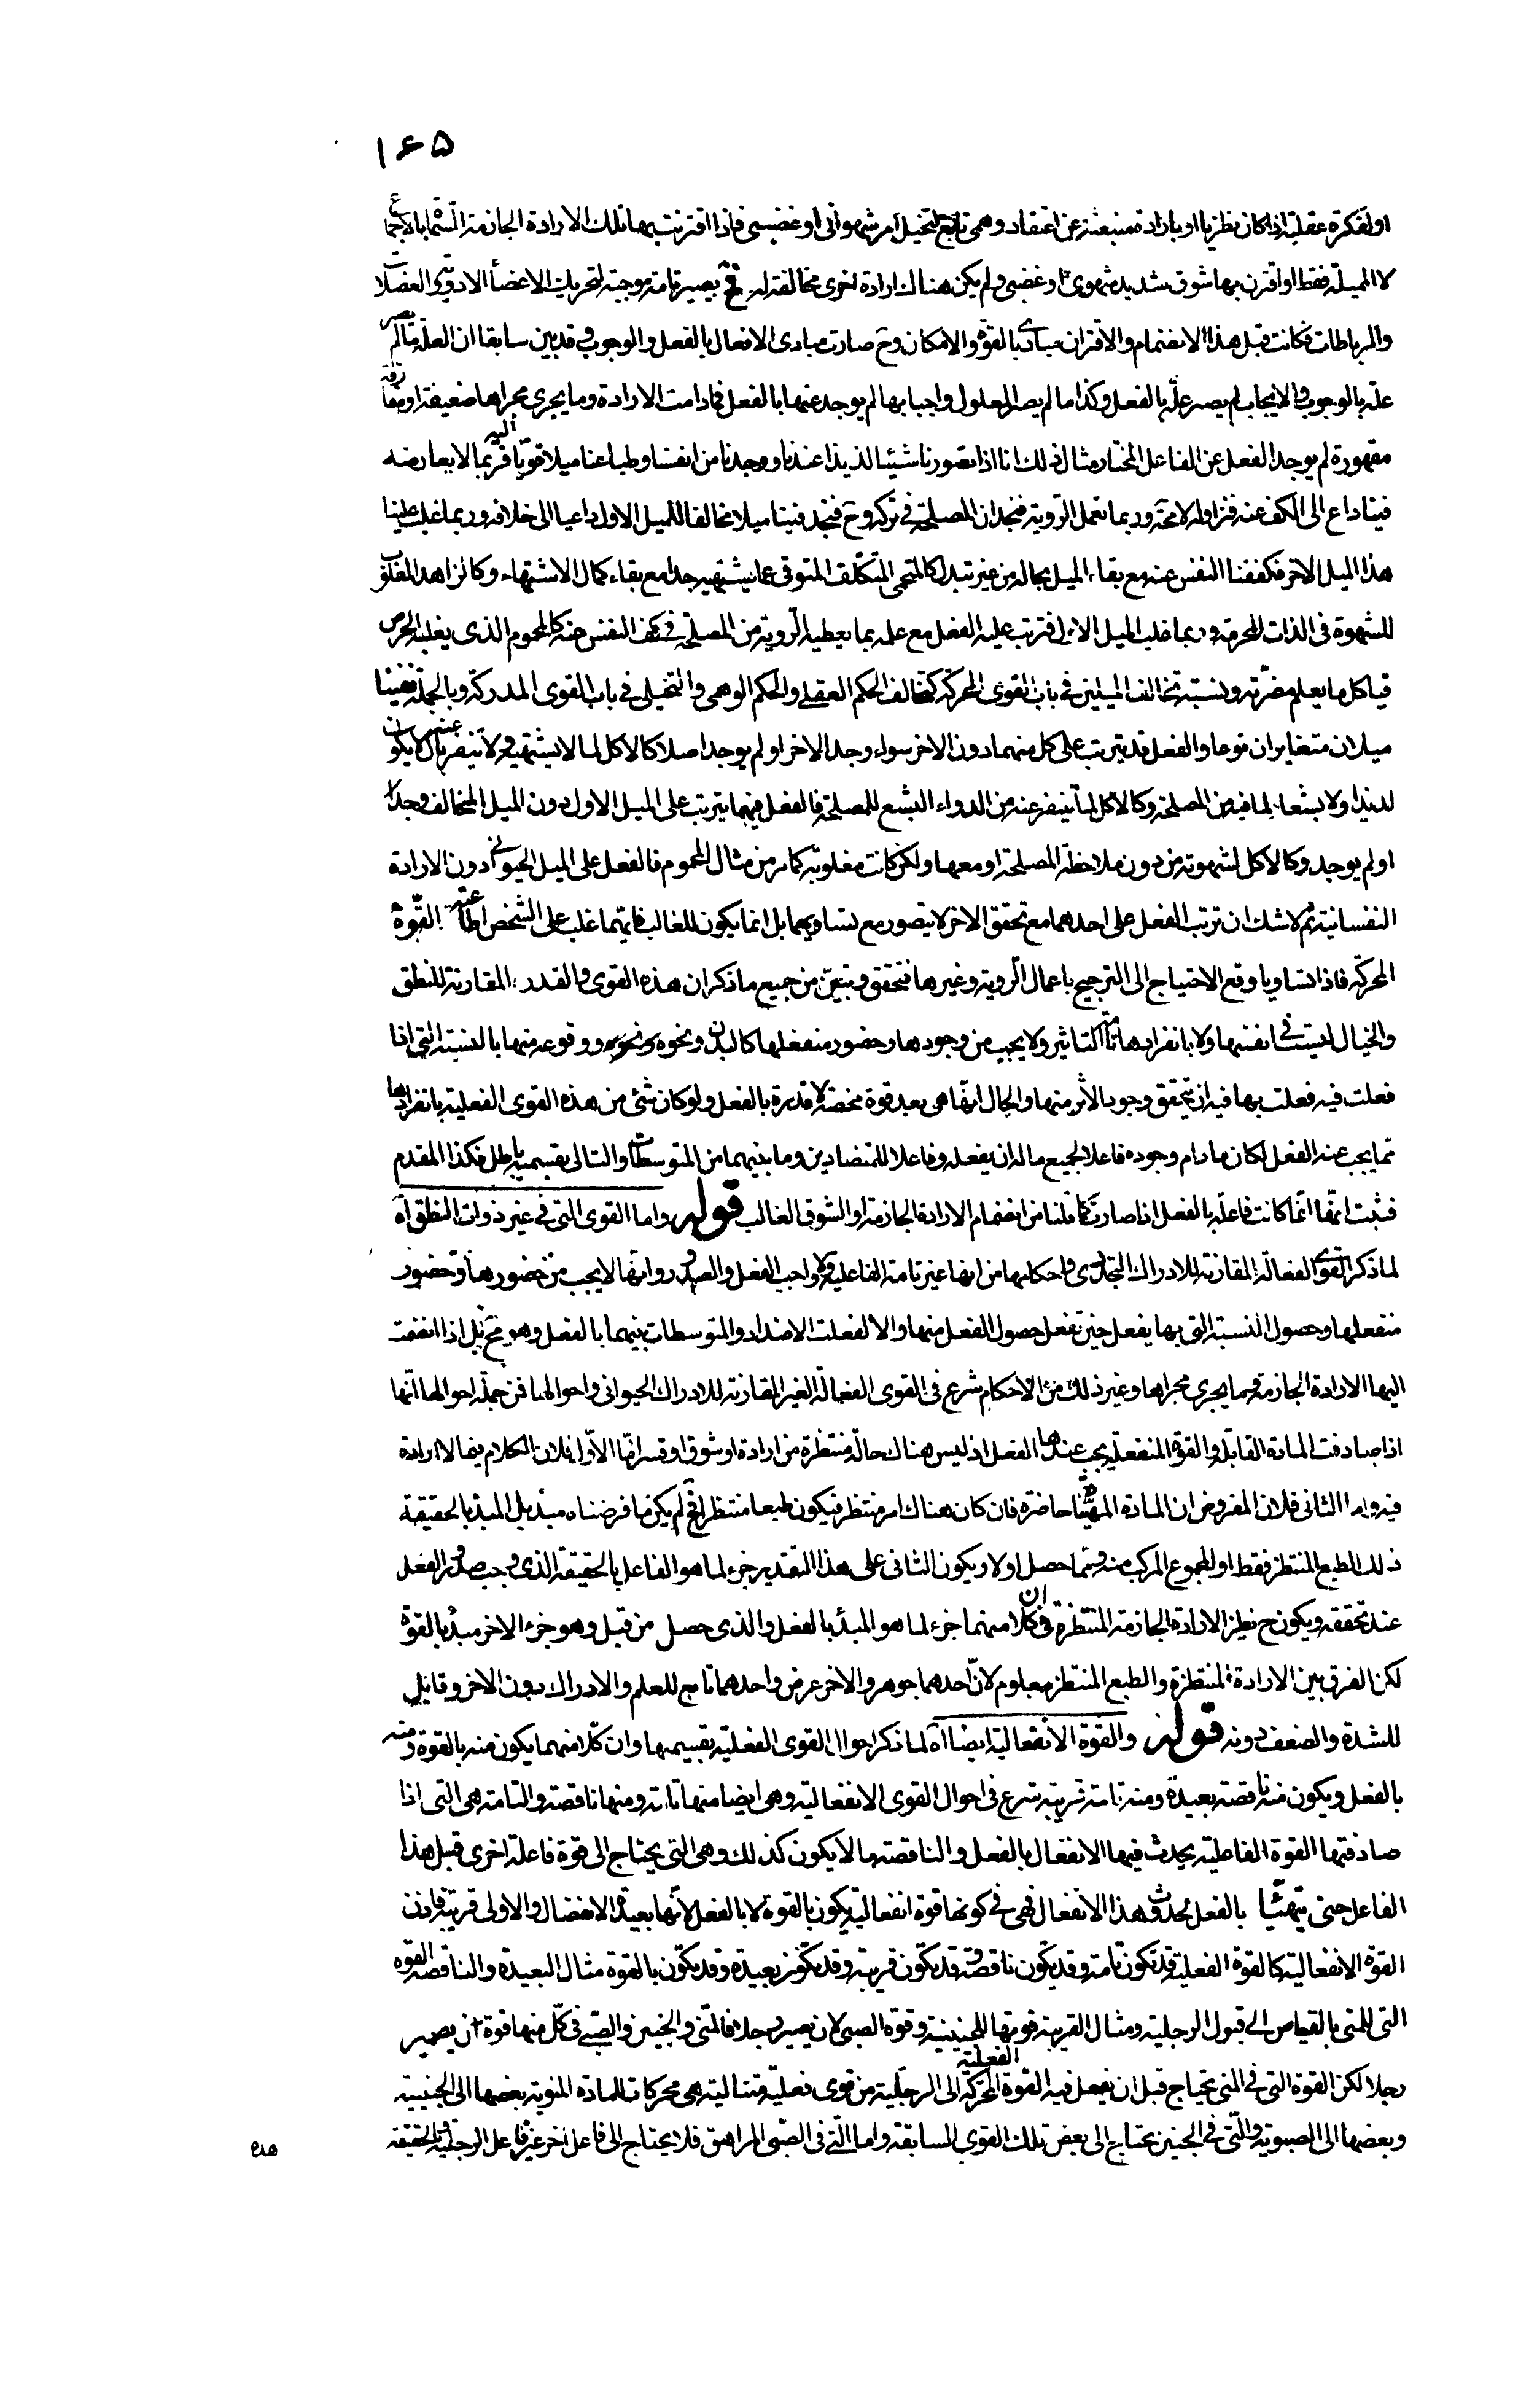 ١٦٥
او لفكرة عقلية اذا كان نظريا او بارادة منبعثة عن اعتقاد وهمى تابع لتخيل امر شهوانى او غضبى فاذا اقترنت بها تلك الارادة الجازمة المسماة بالاجماع
لا المميلة فقط او اقترن بها شوق شديد شهوى او غضبى ولم يكن هناك ارادة اخرى مخالفة له فح يصير تامة موجبة لتحريك الاعضاء الادوية والعضلات
والرباطات فكانت قبل هذا الانضمام والاقتران مبادى بالقوة والامكان وح صارت مبادى الافعال بالفعل والوجوب وقد بين سابقا ان العلة ما لم يصر
علة بالوجوب والايجاب لم يصر علة بالفعل وكذا ما لم يصر المعلول واجبا بها لم يوجد عنها بالفعل فما دامت الارادة وما يجرى مجراها ضعيفة او مفارقة
مقهورة لم يوجد الفعل عن الفاعل المختار مثال ذلك انا اذا تصورنا شيئا لذيذا عندنا ووجدنا من انفسنا وطباعنا ميلا قويا اليه فربما لا يعارضه
فينا داع الى الكف عنه فنزاوله لا محة وربما نعمل الروية فنجد ان المصلحة فى تركه وح فنجد فينا ميلا مخالفا للميل الاول داعيا الى خلافه وربما غلب علينا
هذا الميل الاخر فكففنا النفس عنه مع بقاء الميل بحاله من غير تبدل كالمتحمى المتكلف المتوقى عما يشتهيه جدا مع بقاء كمال الاشتهاء وكالزاهد المغلوب
للشهوة فى الذات المحرمة وربما غلب الميل الاول فترتب عليه الفعل مع علمه بما يعطيه الروية من المصلحة فى كف النفس عنه كالمحموم الذى يغلبه الحرص
فياكل ما يعلم مضرته ونسبة تخالف الميلين فى باب القوى المحركة كتخالف الحكم العقلى والحكم الوهمى والتخيلى فى باب القوى المدركة وبالجملة ففينا
ميلان متغايران نوعا والفعل قد يترتب على كل منهما دون الاخر سواء وجد الاخر او لم يوجد اصلا كالاكل لما لا يشتهيه ولا تنفر عنه بل لا يكون
لذيذا ولا بشعا لما فيه من المصلحة وكالاكل لما تنفر عنه من الدواء البشع للمصلحة فالفعل فيهما يترتب على الميل الاول دون الميل المخالف وجد
او لم يوجد وكالاكل لشهوته من دون ملاحظة المصلحة او معها ولكن كانت مغلوبة كما مر من مثال المحموم فالفعل على الميل الحيوانى دون الارادة
النفسانية ثم لا شك ان ترتب الفعل على احدهما مع تحقق الاخر لا يتصور مع تساويهما بل انما يكون للغالب فايهما غلب على الشخص اطاعته القوة
المحركة فاذا تساويا وقع الاحتياج الى الترجيح باعمال الروية وغيرها فتحقق وتبين من جميع ما ذكر ان هذه القوى والقدر المقارنة للنطق
والخيال ليست فى انفسها ولا بانفرادها تامة التاثير ولا يجب من وجودها وحضور منفعلها كالبدن ونحوه ووقوعه منها بالنسبة التى اذا
فعلت فيه فعلت بها فيه ان يتحقق وجود الاثر منها والحال انها هى بعد قوة محضة لا قدرة بالفعل ولو كان شئ من هذه القوى الفعلية بانفرادها
مما يجب عنه الفعل لكان ما دام وجوده فاعلا لجميع ما له ان يفعله وفاعلا للمتضادين وما بينهما من المتوسطات والتالى بقسميه باطل فكذا المقدم
فثبت انها انما كانت فاعلة بالفعل اذا صارت كما قلنا من انضمام الارادة الجازمة او الشوق الغالب قوله واما القوى التى فى غير ذوات النطق آه
لما ذكر القوى الفعالة المقارنة للادراك واحكامها من انها غير تامة الفاعلية ولا واجب الفعل والصدور وانها لا يجب من حضورها وحضور
منفعلها وحصول النسبة التى بها يفعل حين تفعل حصول الفعل منها والا لفعلت الاضداد والمتوسطات بينهما بالفعل وهو مح بل اذا انضمت
اليها الارادة الجازمة وما يجرى مجراها وغير ذلك من الاحكام شرع فى القوى الفعالة الغير المقارنة للادراك الحيوانى واحوالها فمن جملة احوالها انها
اذا صادفت المادة القابلة والقوة المنفعلة يجب عندها الفعل اذ ليس هناك حالة منتظرة من ارادة او شوق او قسر اما الاول فلان الكلام فيما لا ارادة
فيه واما الثانى فلان المفروض ان المادة المهيئة حاضرة فان كان هناك امر منتظر فيكون طبعا منتظرا فح لم يكن ما فرضناه مبدء بل المبدء بالحقيقة
ذلك الطبع المنتظر فقط او المجموع المركب منه ومما حصل اولا ويكون الثانى على هذا التقدير جزء لما هو الفاعل بالحقيقة الذى وجب صدور الفعل
عند تحققه ويكون ح نظير الارادة الجازمة المنتظرة فى ان كلا منهما جزء لما هو المبدء بالفعل والذى حصل من قبل وهو جزء الاخر مبدء بالقوة
لكن الفرق بين الارادة المنتظرة والطبع المنتظر معلوم لان احدهما جوهر والاخر عرض واحدهما تابع للعلم والادراك دون الاخر وقابل
للشدة والضعف دونه قوله والقوة الانفعالية ايضا آه لما ذكر احوال القوى الفعلية بقسيمها وان كلا منهما يكون منه بالقوة ومنه
بالفعل ويكون منه ناقصة بعيدة ومنه تامة قريبة شرع فى احوال القوى الانفعالية وهى ايضا منها تامة ومنها ناقصة والتامة هى التى اذا
صادفتها القوة الفاعلية يحدث فيها الانفعال بالفعل والناقصة ما لا يكون كذلك وهى التى يحتاج الى قوة فاعلة اخرى قبل هذا
الفاعل حتى يتهيأ بالفعل لحدوث هذا الانفعال فهى فى كونها قوة انفعالية يكون بالقوة لا بالفعل لانها بعيدة الانفعال والاولى قريبة فاذن
القوة الانفعالية كالقوة الفعلية قد تكون تامة وقد يكون ناقصة وقد تكون قريبة وقد تكون بعيدة وقد تكون بالقوة مثال البعيدة والناقصة القوة
التى للمنى بالقياس الى قبول الرجلية ومثال القريبة قوتها للجنينية وقوة الصبى لان يصير رجلا فالمنى والجنين والصبى فى كل منها قوة ان يصير
رجلا لكن القوة التى فى المنى يحتاج قبل ان يفعل فيه القوة الفعلية المحركة الى الرجلية من قوى فعلية متتالية هى محركات للمادة المنوية بعضها الى الجنينية
وبعضها الى الصبوية والتى فى الجنين تحتاج الى بعض تلك القوى السابقة واما التى فى الصبى المراهق فلا يحتاج الى فاعل اخر غير فاعل الرجلية والحقيقة
هده